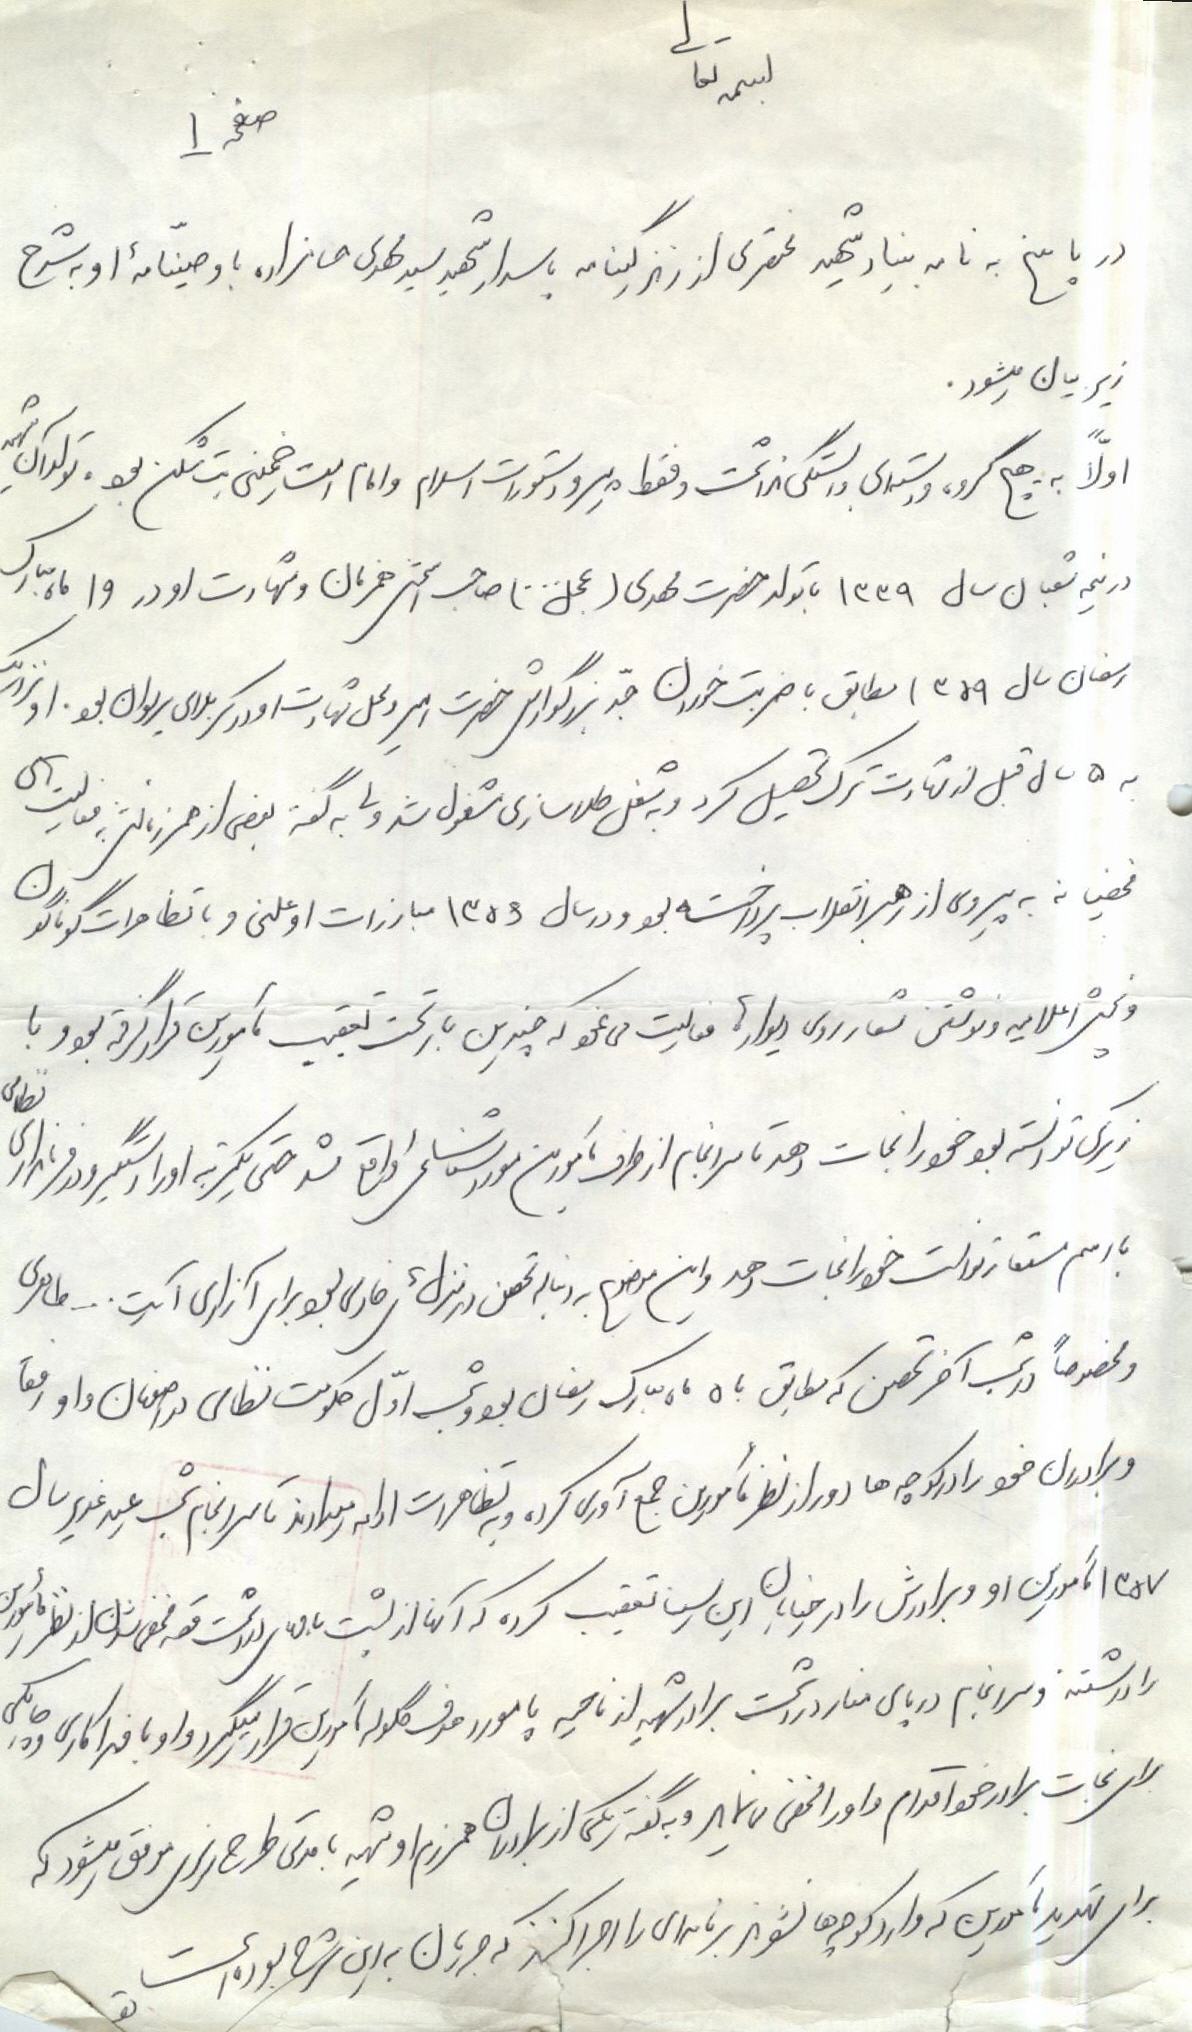 بسمه تعالی
صفحه ۱
در پاسخ به نامه بنیاد شهید مختصری از زندگینامه پاسدار شهید سید مهدی با وصیتنامهٔ او به شرح
زیر بیان میشود.
اولاً به هیچ گروه و دسته‌ای وابستگی نداشت و فقط پیرو دستورات اسلام و امام امت خمینی بت شکن بود. تولد آن شهید
در نیمه شعبان سال ۱۳۳۹ با تولد حضرت مهدی (عجل...) صاحب شهادت او در ۱۹ ماه مبارک
رمضان سال ۱۳۵۹ مطابق با ضربت خوردن جدّ بزرگوارش حضرت امیر و محل شهادت او در کربلای بود. او نزدیک
به ۵ سال قبل از شهادت ترک تحصیل کرد و به شغل طلاسازی مشغول شد ولی به گفته بعضی از همرزمانش به فعالیت‌های
مخفیانه به پیروی از رهبر انقلاب پرداخته بود و در سال ۱۳۵۶ مبارزات او علنی و با تظاهرات گوناگون
و پخش اعلامیه و نوشتن شعار روی دیوارها فعالیت می نمود که چندین بار تحت تعقیب مأمورین قرار گرفته بود و با
زیرکی توانسته بود خود را نجات دهد تا سرانجام از طرف مأمورین مورد شناسائی واقع شد حتی یکمرتبه او را دستگیر و در فرمانداری نظامی
با اسم مستعار توانست خود را نجات دهد و این موضوع به دنباله تحصن در منزل بود برای آزادی آیت... طاهری
و مخصوصاً در شب آخر تحصن که مطابق با ۵ ماه مبارک رمضان بود و شب اوّل حکومت نظامی در اصفهان و او رفقا
و برادران خود را در کوچه ها دور از نظر مأمورین جمع آوری کرده و به تظاهرات ادامه میدادند تا سرانجام شب عید غدیر سال
۱۳۵۷ مأمورین او و برادرش را در خیابان ابن سینا تعقیب کرده که آنها از پشت قصد مخفی شدن از نظر مأمورین
را داشتند و سرانجام در پای منار دردشت برادر شهید از ناحیه پا مورد هدف گلوله مأمورین قرار میگیرد و او با فداکاری و چابکی
برای نجات برادر خود اقدام و او را مخفی می نماید و به گفته یکی از برادران همرزم او شهید با مدتی طرح ریزی موفق میشود که
برای تهدید مأمورین که وارد کوچه‌ها نشوند برنامه‌ای را اجرا کنند که جریان به این شرح بوده است